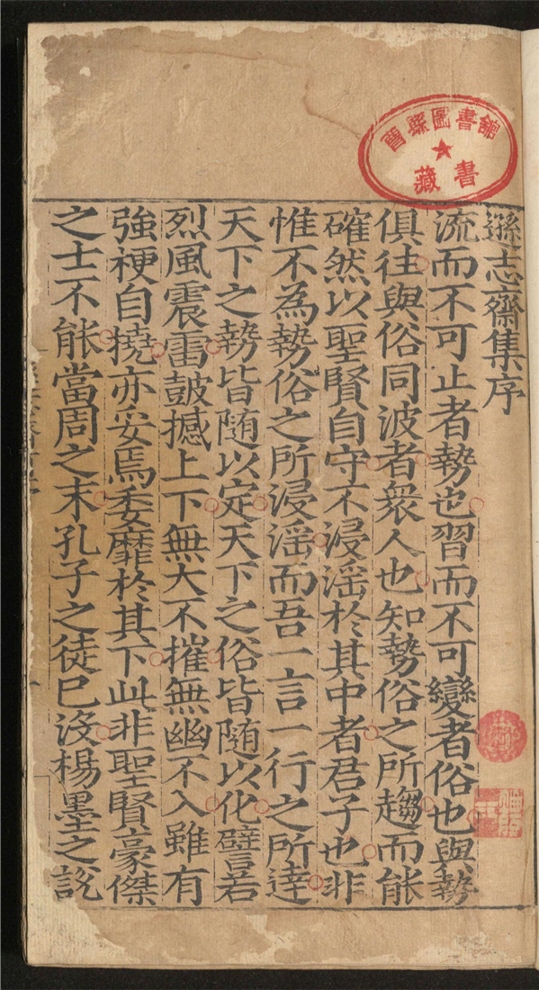 遜志齋集序
流而不可止者勢也習而不可變者俗也與勢
俱徃與俗同波者衆人也知勢俗之所趨而能
確然以聖賢自守不浸滛於其中者君子也非
惟不為勢俗之所浸滛而吾一言一行之所達
天下之勢皆随以定天下之俗皆随以化譬若
烈風震雷鼓撼上下無大不摧無幽不入雖有
強梗自撓亦妥焉委靡於其下此非聖賢豪傑
之士不能當周之末孔子之徒已沒楊墨之說
縣圖書館
藏書